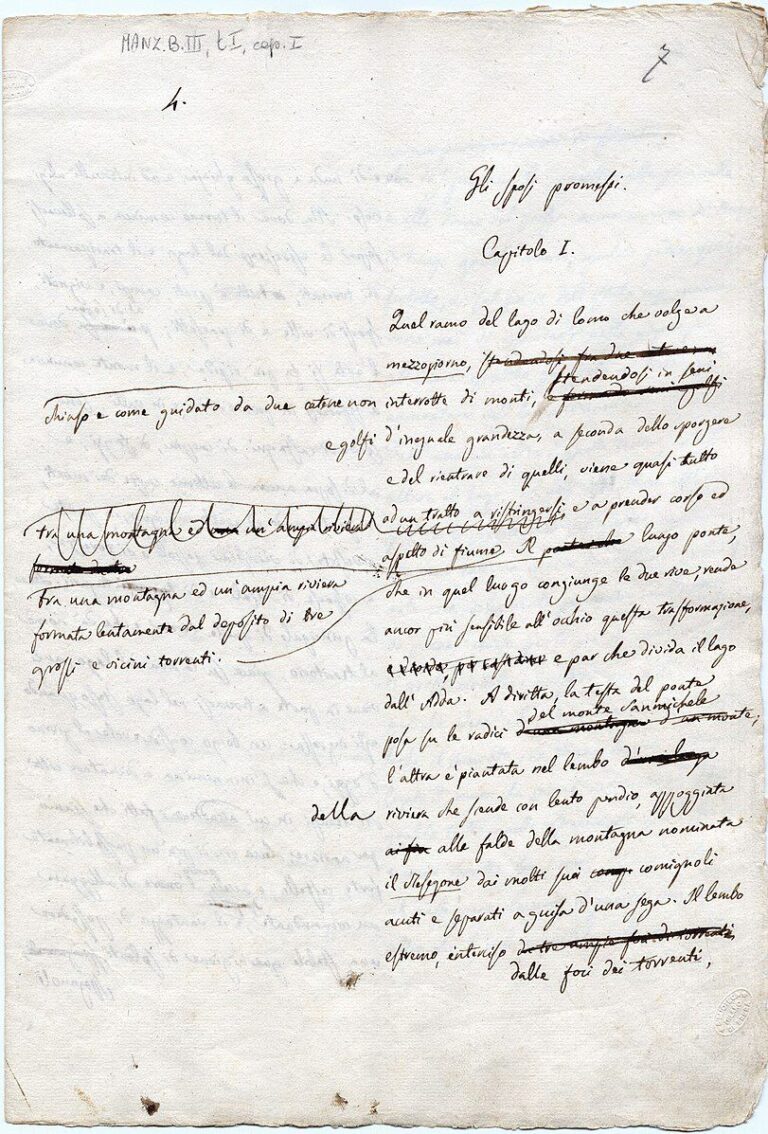 MANZ.B.III, t.I, cap. I
7
4.
Gli sposi promessi.
Capitolo I.
Quel ramo del lago di Como che volge a
mezzogiorno, stendendosi fra due
stendendosi in seni
chiuso e come guidato da due catene non interrotte di monti, e
e golfi d'ineguale grandezza, a seconda dello sporgere
e del rientrare di quelli, viene quasi tutto
ad un tratto a ristringersi e a prender corso ed
tra una montagna ed un'ampia riviera
aspetto di fiume Il luogo ponte,
tra una montagna ed un'ampia riviera
che in quel luogo congiunge le due rive, rende
formata lentamente dal deposito di tre
ancor più sensibile all'occhio questa trasformazione,
grossi e vicini torrenti.
e par che divida il lago
dall'Adda. A diritta, la testa del ponte
del monte Sanmichele
posa su le radici d'una montagna d'un monte,
l'altra è piantata nel lembo
della riviera che scende con lento pendio, appoggiata
alle falde della montagna nominata
il Resegone dai molti suoi comignoli
acuti e separati a guisa d'una sega. Il lembo
estremo, interciso da tre ampie foci di torrenti,
dalle foci dei torrenti,